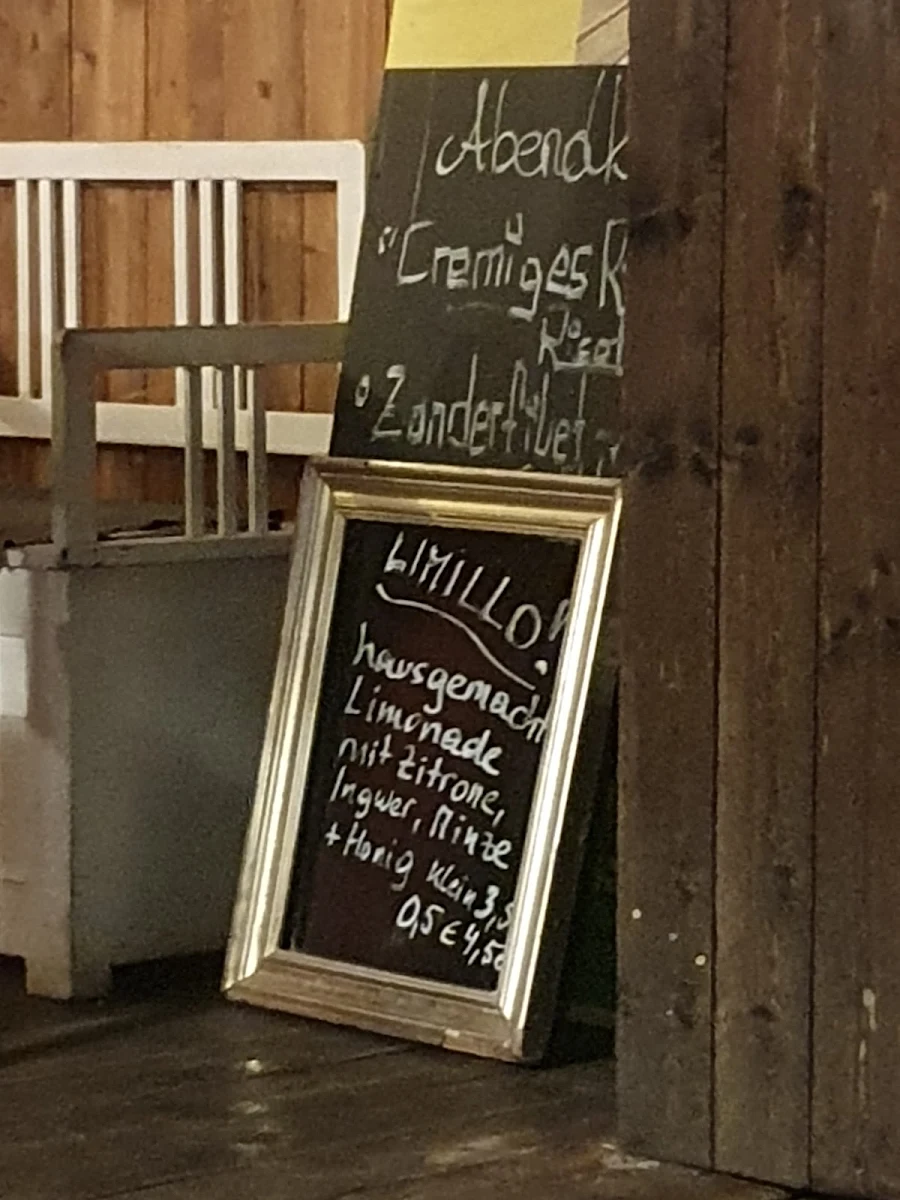 Abendk
"Cremiges R
Zanderfilet
LIMILLO!
hausgemacht
Limonade
mit Zitrone,
Ingwer, Minze
+ Honig klein 3,5
0,5 € 4,50